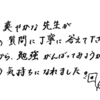 爽やかな先生が
質問に丁寧に答えて下
から、勉強がんばってみようか
気持ちになれました。